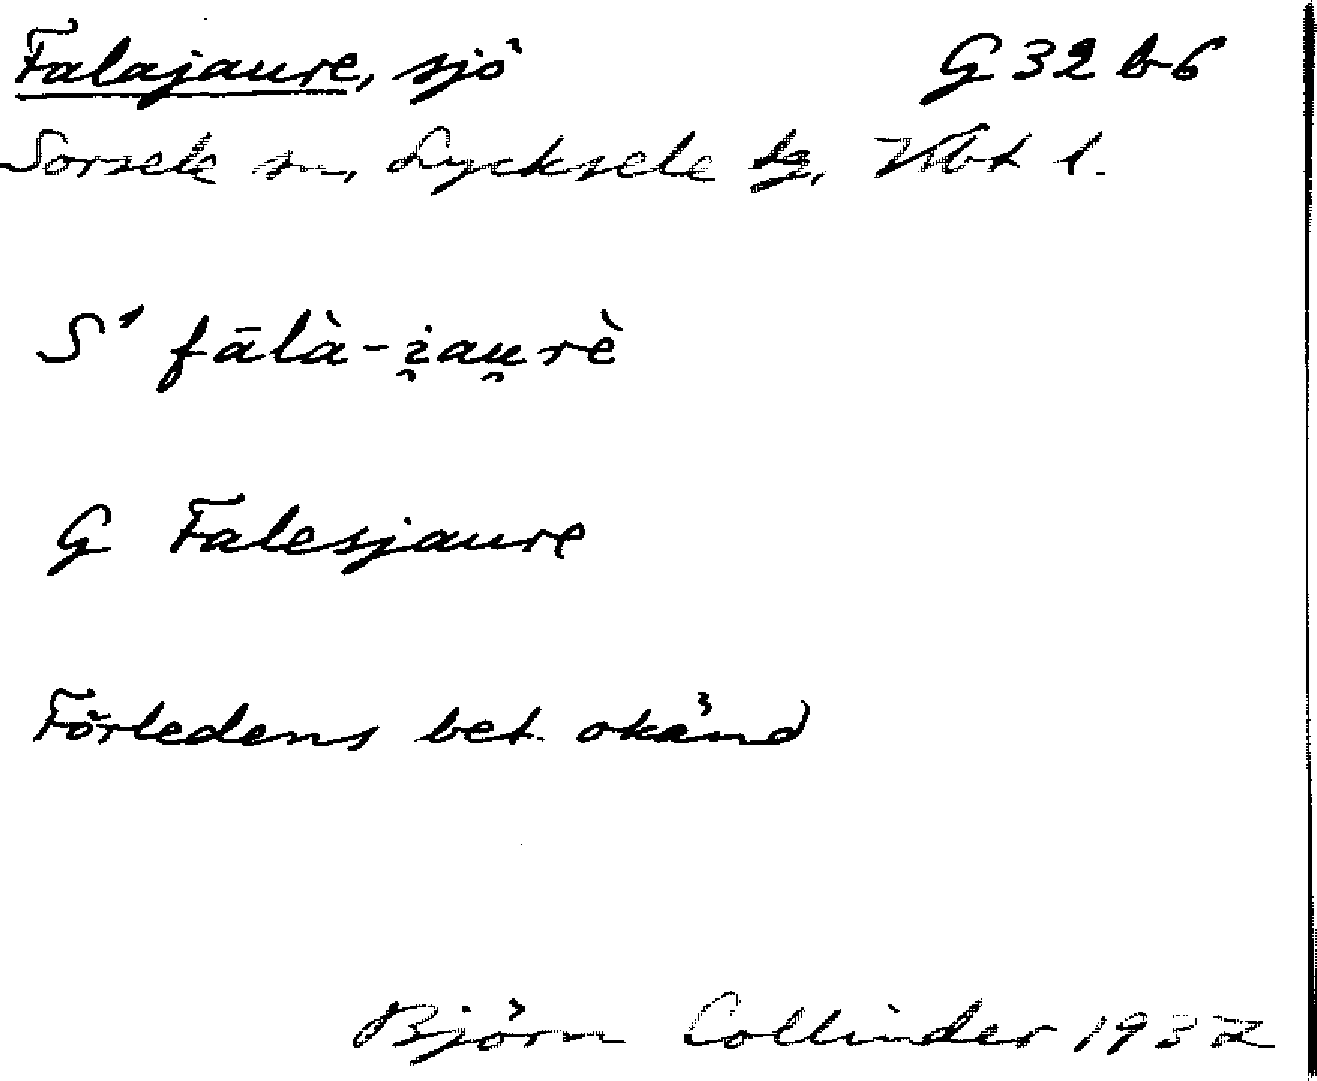 Falajaure, sjö G 32 b-6
Sorsele sn, Lycksele lg, Vbt l.
S' fālà-i̯au̯rè
G Falesjaure
Förledens bet. okänd
Björn Collinder 1937